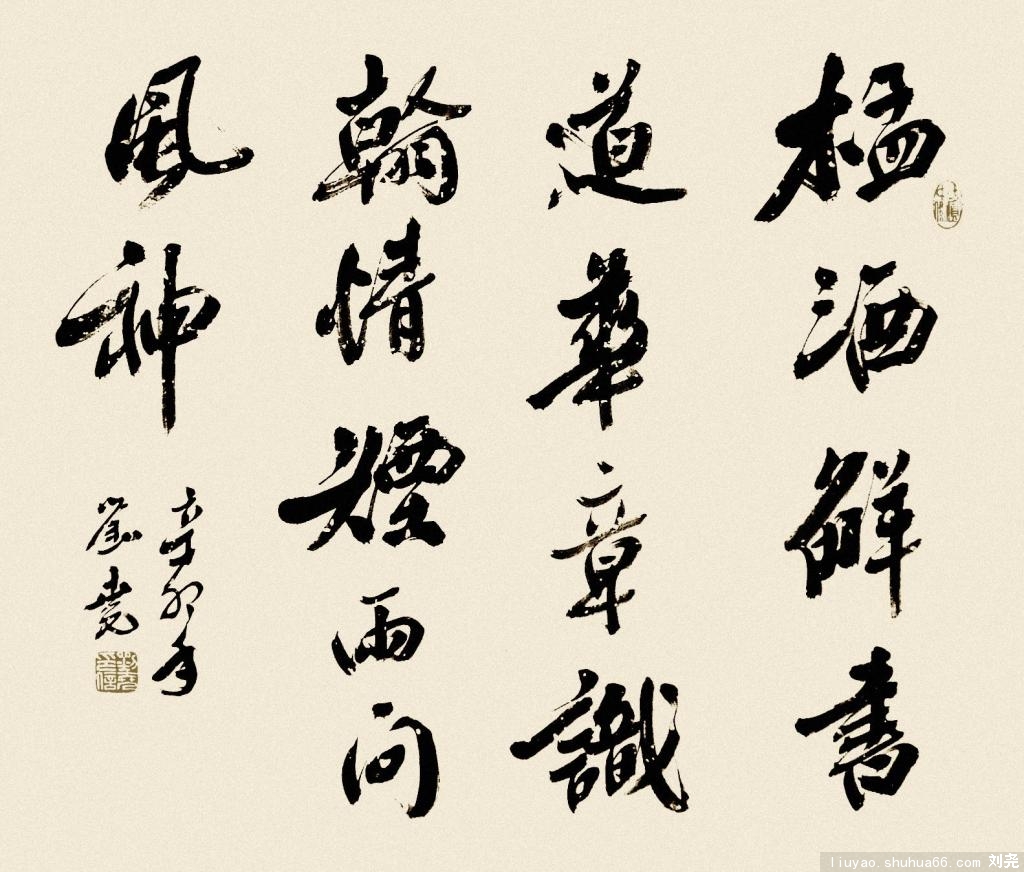 榅洒觧書
道華章識
翰情煙雨问
風神
辛卯年
劉堯
liuyao.shuhua66.com 刘尧